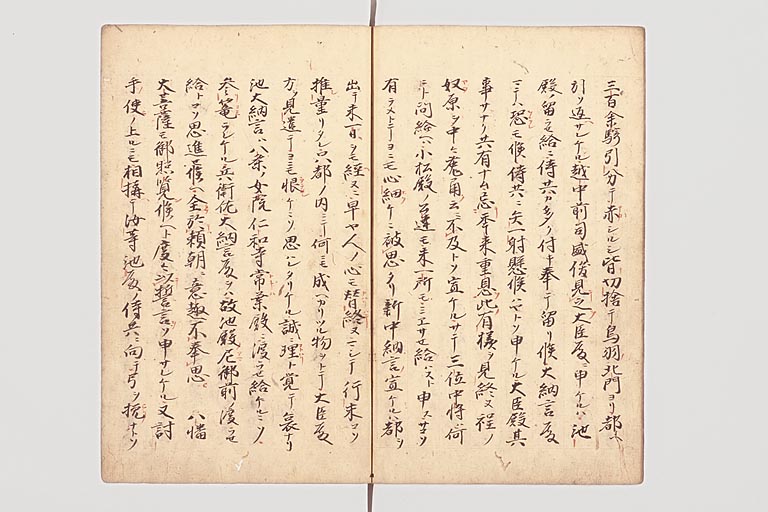 三百余騎引分テ赤シルシ皆切捨テ鳥羽北門ヨリ都ヘ
引ソ返サレケル越中前司盛俊見之大臣殿ニ申ケルハ池
殿ノ留セ給ニ侍共カ多ノ付奉テ留リ候大納言殿
マテハ恐モ候侍共ニ矢一射懸候ハヤトソ申ケル大臣殿其
事サナクモ有ナム忘年来重恩此有様ヲ見終ヌ程ノ
奴原ノ中々兎角云ニ不及トソ宣ケルサテ三位中将ハ何
ニト問給ヘハ小松殿ノ公達モ未一所モミエサセ給ハスト申ス サコソ
有ラメトテヨニモ心細ケニ被思タリ新中納言宣ケルハ都ヲ
出テ未一日タニモ経ヌニ早ヤ人ノ心モ替終ヌマシテ行末コソ
推量リタレ只都ノ内ニテ何ニモ成ヘカリツル物ヲトテ大臣殿
方ヲ見遣テヨニモ恨ケニソ思ハレタリケル誠ニ理ト覚テ哀ナリ
池大納言ハ八条ノ女院仁和寺常葉殿ニ渡ラセ給ケルニソ
参籠ラレケル兵衛佐大納言殿ヲハ故池殿尼御前ノ渡ラセ
給トコソ思進候ヘ全於頼朝ニ意趣不奉思 八幡
大菩薩モ御照覧候ヘト度々以誓言ヲ申サレケル又討
手使ノ上ルニモ相構テ汝等池殿ノ侍共ニ向テ弓ヲ挽ナトソ